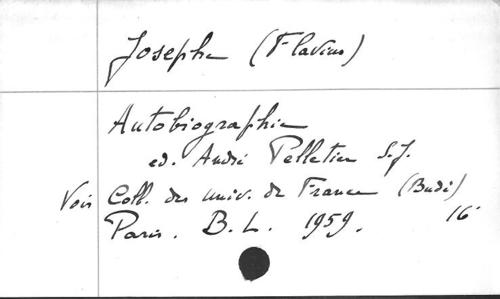 Josephe (Flavius)
Autobiographie
ed. André Pelletier S.J.
Voir Coll. des univ. de France (Budé)
Paris. B.L. 1959. 16°